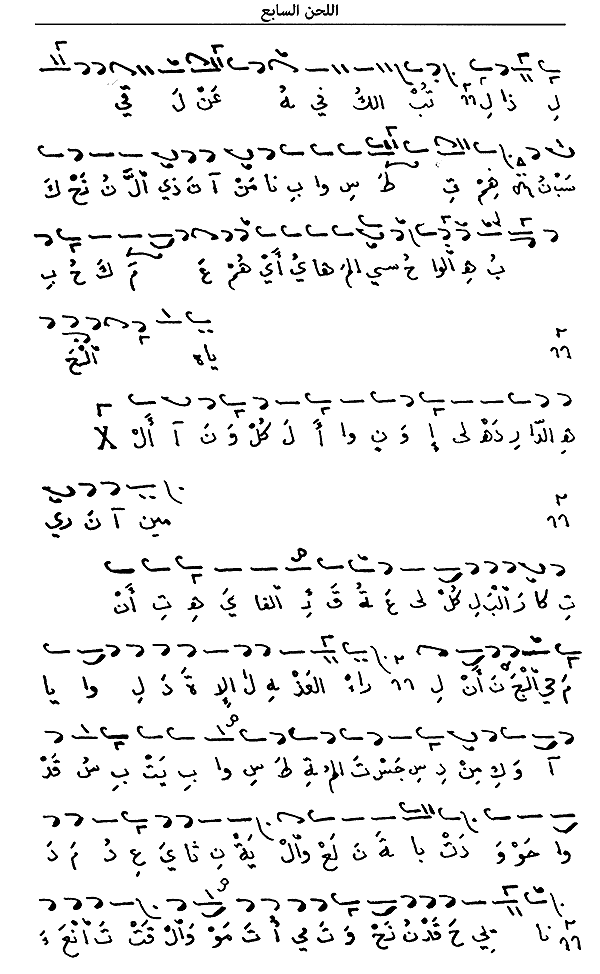 اللحن السابع
لِ ذا لِ تُبْ الكُ في هُ عَنْ لَ قي
سَبْ نُ هِمْ تِ طَ سِ وا بِ نا مَنْ آ تَ ذي اَلَّ نُ نَحْ كَ
بُ هِ اَلوا حُ سي الم هايُ أَيْ هُمْ عَ مَ كَ حُ بِ
ياه اَلْحَ
هِ الدّا رِ دَهْ لى إِ وَ نِ وا أَ لَ كُلْ وَ نَ آ أَلْ
مين آ نَ دي
تِ كا رَ اَلْبَ لِ كُلْ لى عَ ةُ قَ ئِ اَلفا يَ هِ تِ أَنْ
مَ حي اَلْجَ نَ أَنْ لِ راءْ العَذْ هِ لَ الإِ ةَ دَ لِ وا يا
آ وَ كِ مِنْ دِ سِ جَسْ تَ المُ ةِ طَ سِ وا بِ يَتْ بِ سُ قَدْ
وا حَوْ وَ دَتْ با ةَ نَ لَعْ وَاَلْ يَةْ نِ ثا يَ عِ دُ مَ دَ
نا يي حَ قَدْ نُ نَحْ وَ تَ مي أُ تَ مَوْ وَاَلْ قَتْ تَ اُنْعَ ءَ